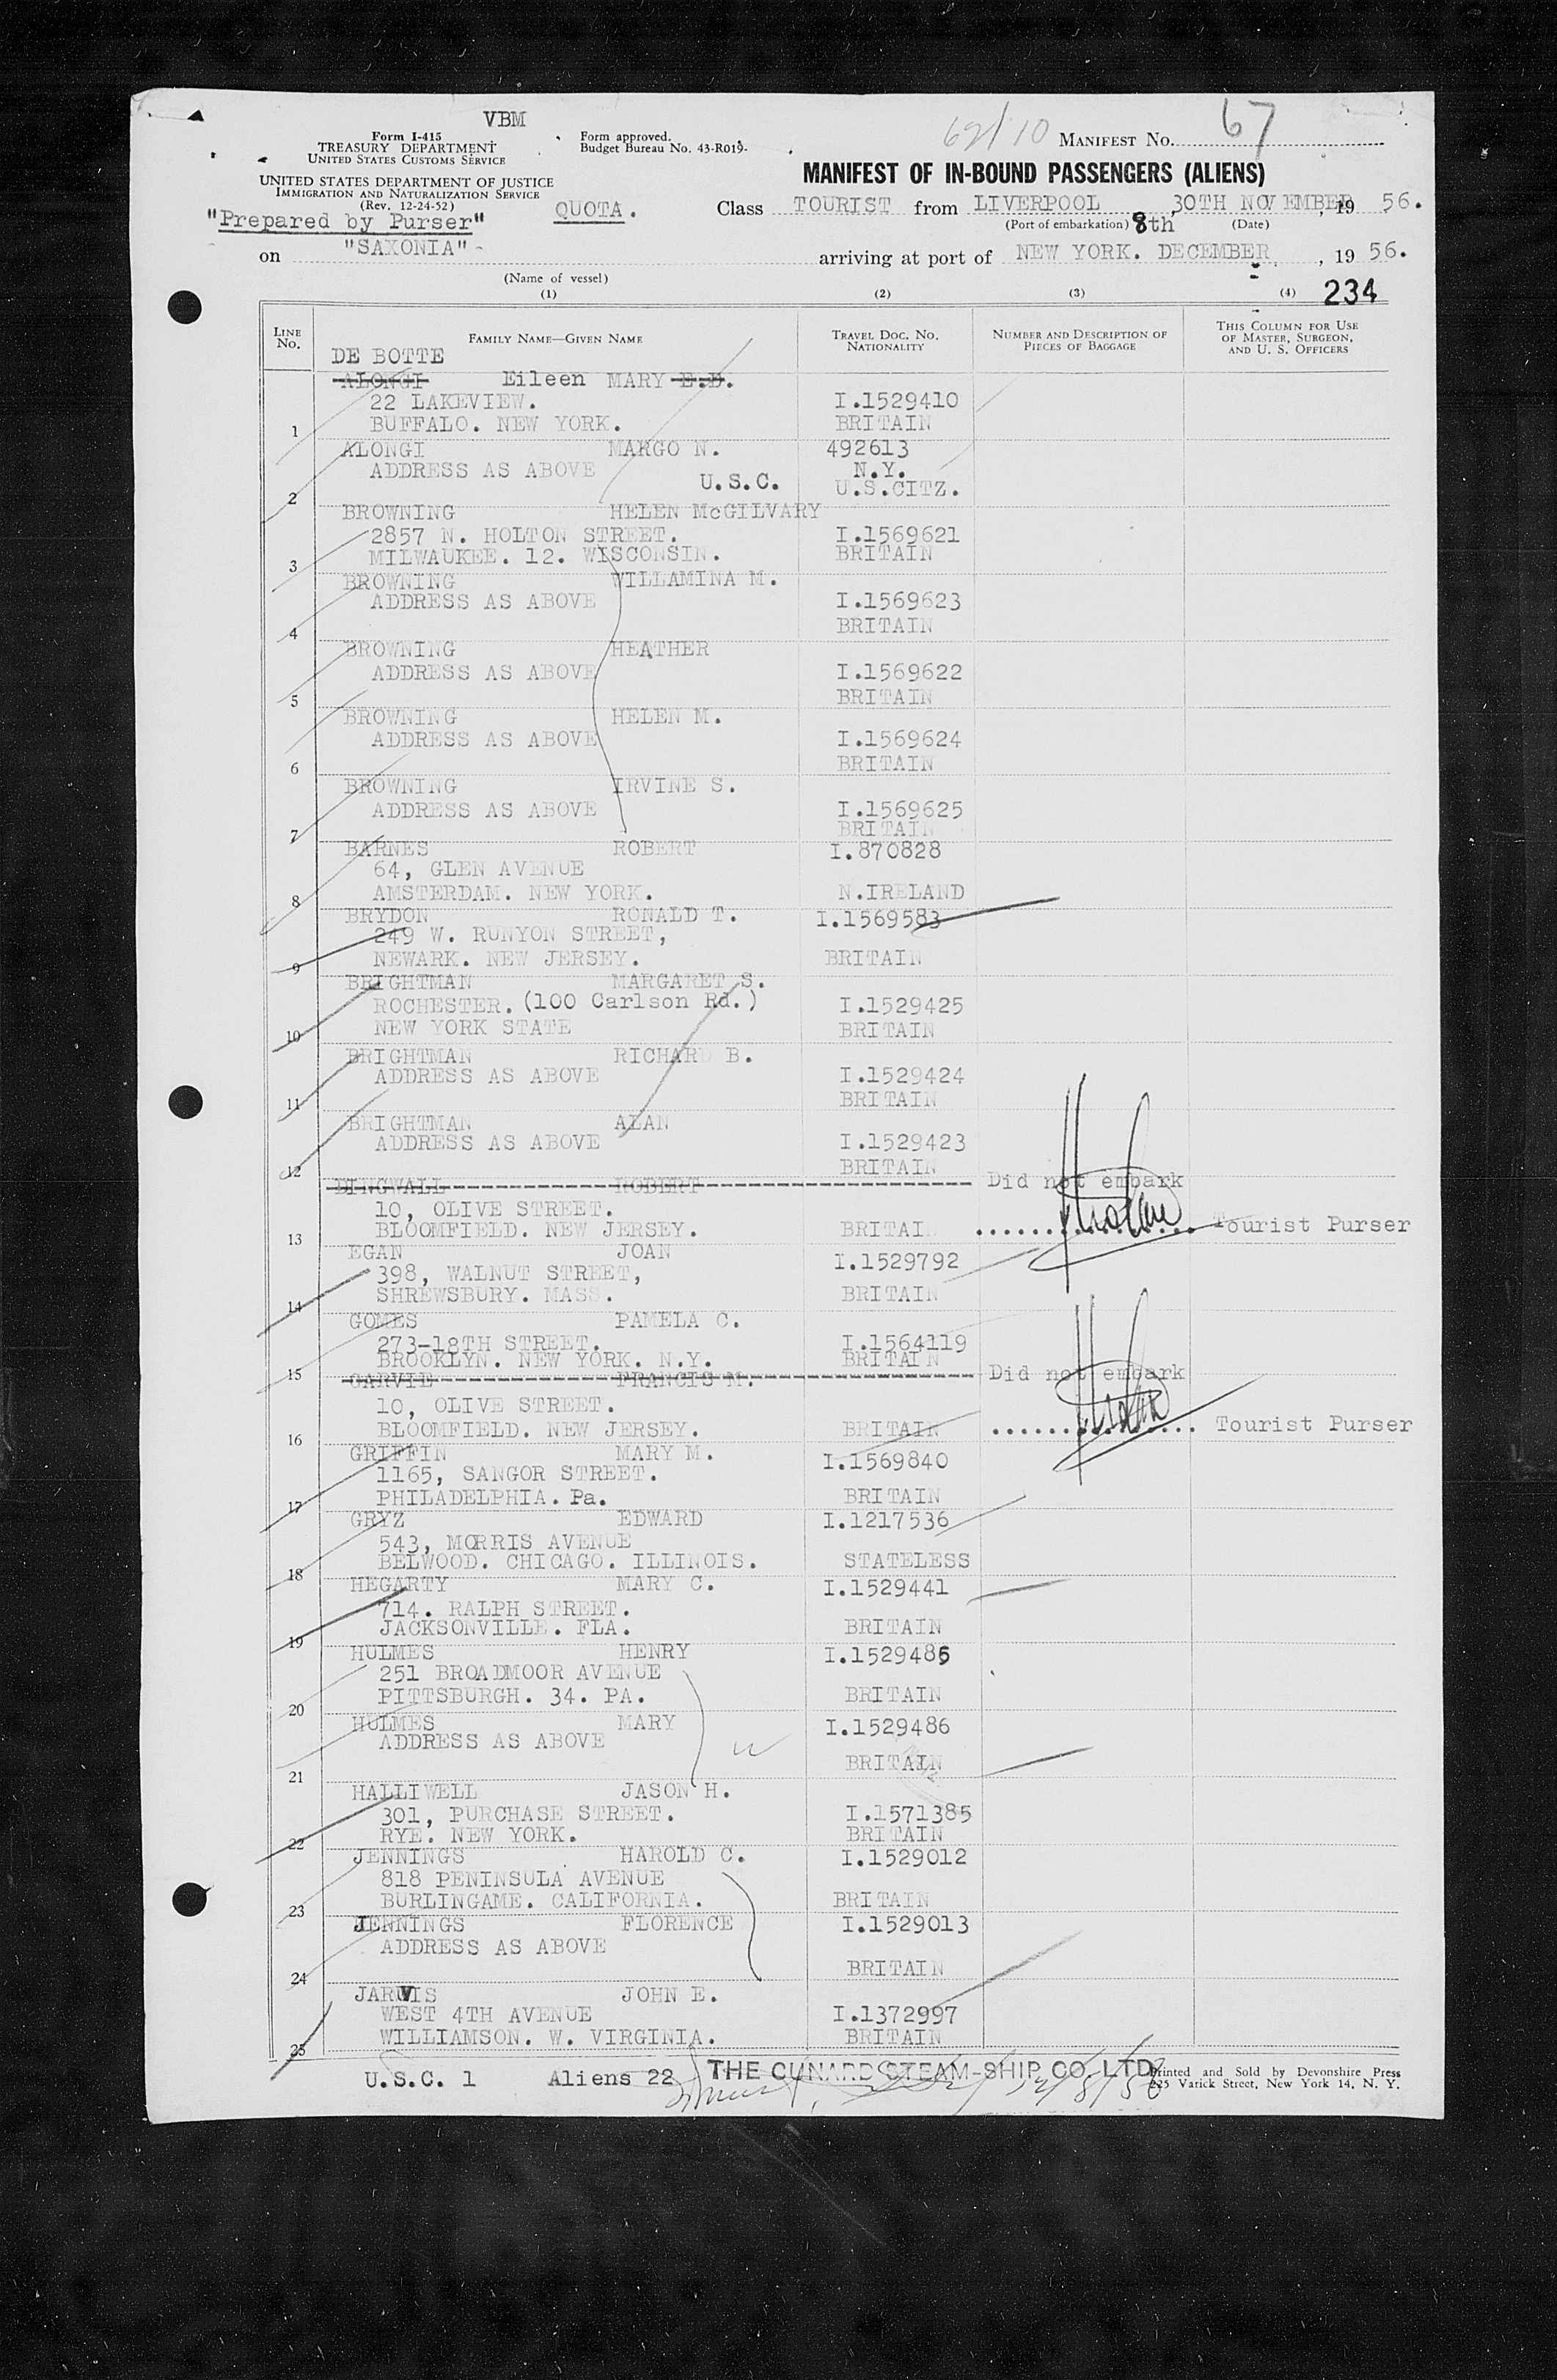 VBM
Form I-415
TREASURY DEPARTMENT
UNITED STATES CUSTOMS SERVICE
Form approved.
Budget Bureau No. 43-R019-
62/10 MANIFEST No. 67
MANIFEST OF IN-BOUND PASSENGERS (ALIENS)
UNITED STATES DEPARTMENT OF JUSTICE
IMMIGRATION AND NATURALIZATION SERVICE
(Rev. 12-24-52)
"Prepared by Purser"
QUOTA.
Class TOURIST from LIVERPOOL, 30TH NOVEMBER, 19 56.
(Port of embarkation) (Date)
on "SAXONIA"-
8th
arriving at port of NEW YORK. DECEMBER, 19 56.
(Name of vessel)
(1) (2) (3) (4) 234
LINE No.
FAMILY NAME—GIVEN NAME
TRAVEL DOC. NO. NATIONALITY
NUMBER AND DESCRIPTION OF PIECES OF BAGGAGE
THIS COLUMN FOR USE OF MASTER, SURGEON, AND U. S. OFFICERS
DE BOTTE
ALONGI Eileen MARY E.D.
22 LAKEVIEW. I.1529410
1 BUFFALO. NEW YORK. BRITAIN
ALONGI MARGO N. 492613
ADDRESS AS ABOVE N.Y.
2 U.S.C. U.S.CITZ.
BROWNING HELEN McGILVARY
2857 N. HOLTON STREET. I.1569621
3 MILWAUKEE. 12. WISCONSIN. BRITAIN
BROWNING WILLAMINA M.
ADDRESS AS ABOVE I.1569623
4 BRITAIN
BROWNING HEATHER
ADDRESS AS ABOVE I.1569622
5 BRITAIN
BROWNING HELEN M.
ADDRESS AS ABOVE I.1569624
6 BRITAIN
BROWNING IRVINE S.
ADDRESS AS ABOVE I.1569625
7 BRITAIN
BARNES ROBERT I.870828
64, GLEN AVENUE
8 AMSTERDAM. NEW YORK. N.IRELAND
BRYDON RONALD T. I.1569583
249 W. RUNYON STREET,
9 NEWARK. NEW JERSEY. BRITAIN
BRIGHTMAN MARGARET S.
ROCHESTER. (100 Carlson Rd.) I.1529425
10 NEW YORK STATE BRITAIN
BRIGHTMAN RICHARD B.
ADDRESS AS ABOVE I.1529424
11 BRITAIN
BRIGHTMAN ALAN
ADDRESS AS ABOVE I.1529423
12 BRITAIN
DINGWALL ROBERT Did not embark
10, OLIVE STREET.
13 BLOOMFIELD. NEW JERSEY. BRITAI Tourist Purser
EGAN JOAN I.1529792
398, WALNUT STREET,
14 SHREWSBURY. MASS. BRITAIN
GOMES PAMELA C.
273-18TH STREET. I.1564119
15 BROOKLYN. NEW YORK. N.Y. BRITAIN
GARVIE FRANCIS M. Did not embark
10, OLIVE STREET.
16 BLOOMFIELD. NEW JERSEY. BRITAIN Tourist Purser
GRIFFIN MARY M. I.1569840
1165, SANGOR STREET.
17 PHILADELPHIA. Pa. BRITAIN
GRYZ EDWARD I.1217536
543, MORRIS AVENUE
18 BELWOOD. CHICAGO. ILLINOIS. STATELESS
HEGARTY MARY C. I.1529441
714. RALPH STREET.
19 JACKSONVILLE. FLA. BRITAIN
HULMES HENRY I.1529485
251 BROADMOOR AVENUE
20 PITTSBURGH. 34. PA. BRITAIN
HULMES MARY I.1529486
ADDRESS AS ABOVE
21 BRITAIN
HALLIWELL JASON H.
301, PURCHASE STREET. I.1571385
22 RYE. NEW YORK. BRITAIN
JENNINGS HAROLD C. I.1529012
818 PENINSULA AVENUE
23 BURLINGAME. CALIFORNIA. BRITAIN
JENNINGS FLORENCE I.1529013
ADDRESS AS ABOVE
24 BRITAIN
JARVIS JOHN E.
WEST 4TH AVENUE I.1372997
25 WILLIAMSON. W. VIRGINIA. BRITAIN
U.S.C. 1 Aliens 22 THE CUNARD STEAM-SHIP CO. LTD.
12/8/56
Printed and Sold by Devonshire Press
225 Varick Street, New York 14, N. Y.